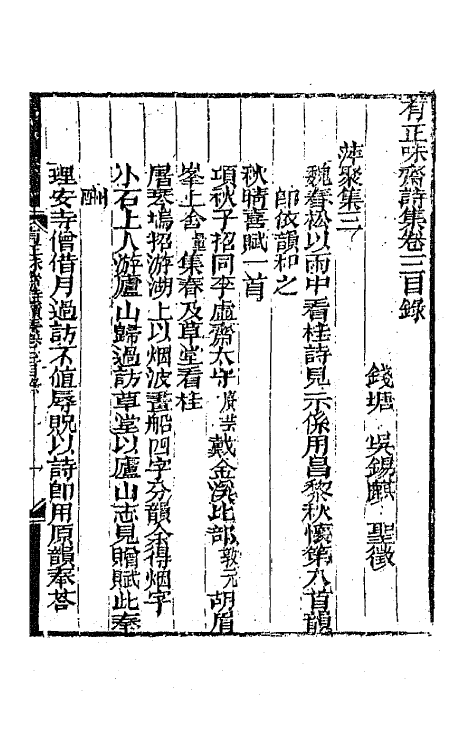 有正味齋詩集卷三目錄
錢塘 吳錫麒 聖徵
萍聚集三
魏春松以雨中看桂詩見示係用昌黎秋懷第八首韻
即依韻和之
秋晴喜賦一首
項秋子招同李虛齋太守廣芸戴金溪比部敦元胡眉
峯上舍 集春及草堂看桂
屠琴塢招游湖上以烟波畫船四字分韻余得烟字
小石上人游廬山歸過訪草堂以廬山志見贈賦此奉
酬
理安寺僧借月過訪不值辱貺以詩即用原韻奉荅